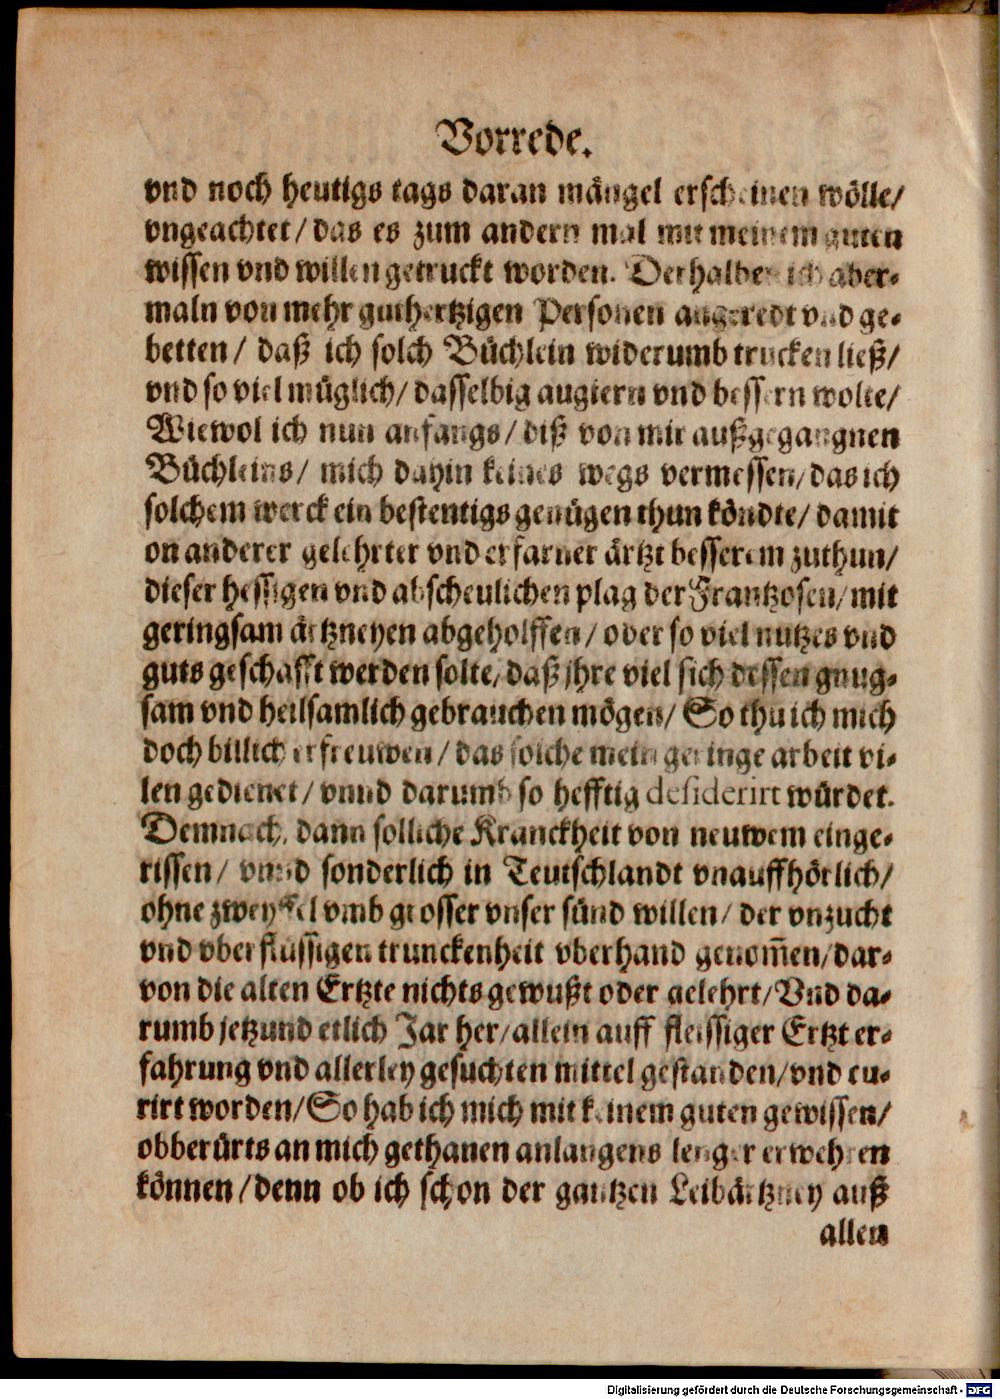 Vorrede.
vnd noch heutigs tags daran mängel erscheinen wölle/
vngeachtet/ das es zum andern mal mit meinem guten
wissen vnd willen getruckt worden. Derhalben ich aber-
maln von mehr guthertzigen Personen angeredt vnd ge-
betten/ daß ich solch Büchlein widerumb trucken ließ/
vnd so viel müglich/ dasselbig augiern vnd bessern wolte/
Wiewol ich nun anfangs/ diß von mir außgegangnen
Büchleins/ mich dahin keines wegs vermessen/ das ich
solchem werck ein bestentigs genügen thun köndte/ damit
on anderer gelehrter vnd erfarner ärtzt besserem zuthun/
dieser hessigen vnd abscheulichen plag der Frantzosen/ mit
geringsam ärtzneyen abgeholffen/ oder so viel nutzes vnd
guts geschafft werden solte/ daß jhre viel sich dessen gnug-
sam vnd heilsamlich gebrauchen mögen/ So thu ich mich
doch billich erfreuwen/ das solche mein geringe arbeit vi-
len gedienet/ vnnd darumb so hefftig desiderirt würdet.
Demnach, dann solliche Kranckheit von neuwem einge-
rissen/ vnnd sonderlich in Teutschlandt vnauffhörlich/
ohne zweyffel vmb grosser vnser sünd willen/ der vnzucht
vnd vberflüssigen trunckenheit vberhand genom̄en/ dar-
von die alten Ertzte nichts gewußt oder gelehrt/ Vnd da-
rumb jetzund etlich Jar her/ allein auff fleissiger Ertzt er-
fahrung vnd allerley gesuchten mittel gestanden/ vnd cu-
rirt worden/ So hab ich mich mit keinem guten gewissen/
obberürts an mich gethanen anlangens lenger erwehren
können/ denn ob ich schon der gantzen Leibärtzney auß
allen
Digitalisierung gefördert durch die Deutsche Forschungsgemeinschaft - DFG